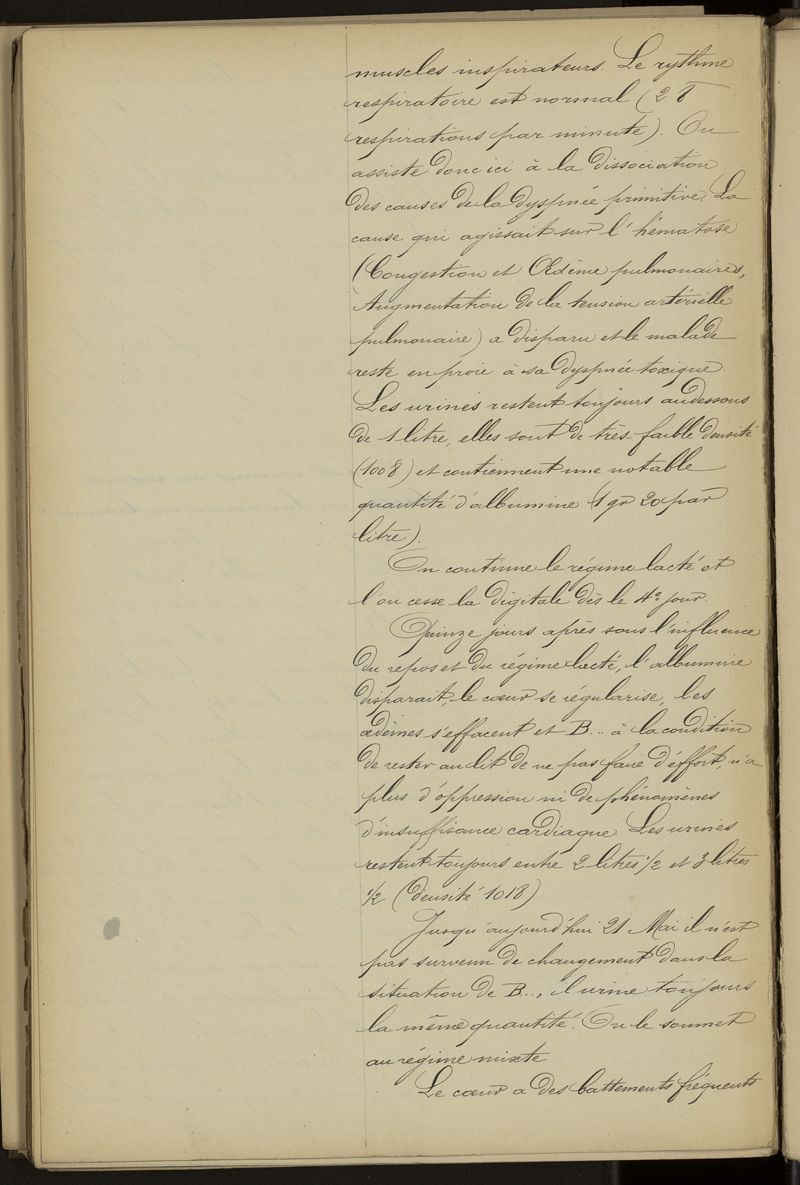 muscles inspirateurs. Le rythme
respiratoire est normal (28
respirations par minute). On
assiste donc ici à la dissociation
des causes de la dyspnée primitive. La
cause qui agissait sur l'hématose
(Congestion et Œdème pulmonaires,
Augmentation de la tension artérielle
pulmonaire) a disparu et le malade
reste en proie à sa dyspnée toxique.
Les urines restent toujours au dessous
de 1 litre, elles sont de très faible densité
(1008) et contiennent une notable
quantité d'albumine (1 gr 20 par
litre).
On continue le régime lacté et
l'on cesse la digitale dès le 4e jour.
Quinze jours après sous l'influence
du repos et du régime lacté, l'albumine
disparait, le cœur se régularise, les
œdèmes s'effacent et B... à la condition
de rester au lit de ne pas faire d'effort, n'a
plus d'oppression ni de phénomènes
d'insuffisance cardiaque. Les urines
restent toujours entre 2 litres 1/2 et 3 litres
1/2 (densité 1018)
Jusqu'aujourd'hui 21 Mai il n'est
pas survenu de changement dans la
situation de B..., il urine toujours
la même quantité. On le soumet
au régime mixte.
Le cœur a des battements fréquents